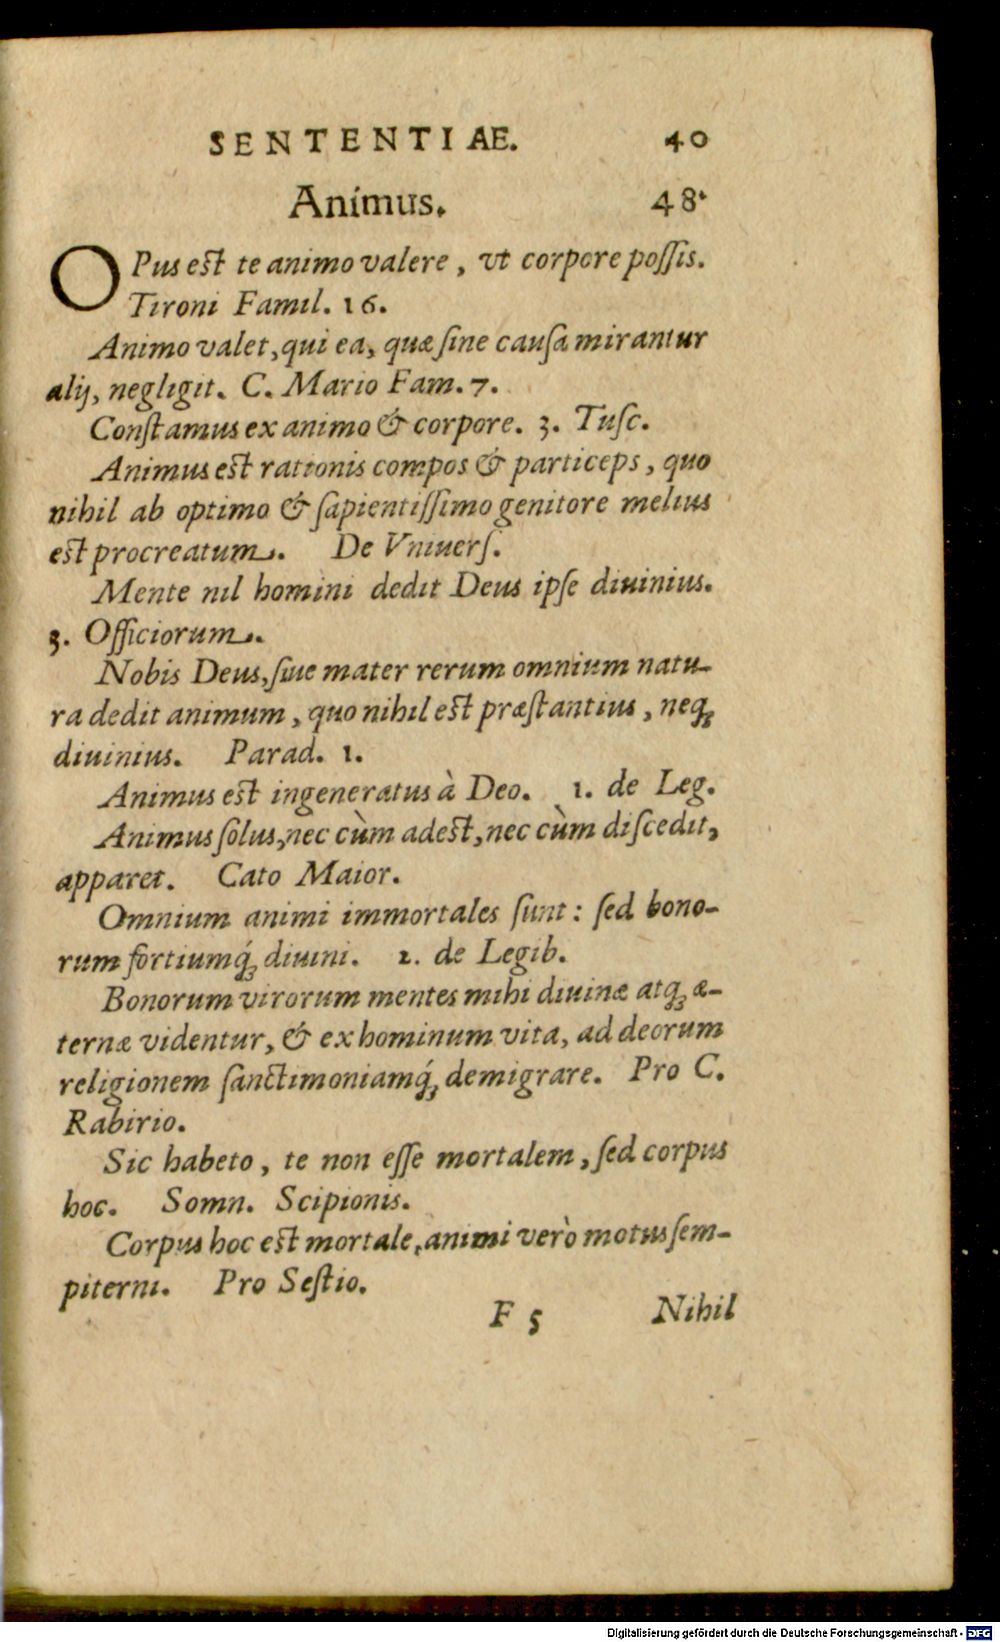 SENTENTIAE. 40
Animus. 48.
OPus est te animo valere, vt corpore poſſis.
Tironi Famil. 16.
Animo valet, qui ea, quæ ſine cauſa mirantur
alij, negligit. C. Mario Fam. 7.
Conſtamus ex animo & corpore. 3. Tuſc.
Animus est rationis compos & particeps, quo
nihil ab optimo & ſapientiſſimo genitore melius
est procreatum. De Vniuerſ.
Mente nil homini dedit Deus ipſe diuinius.
3. Officiorum.
Nobis Deus, ſiue mater rerum omnium natu-
ra dedit animum, quo nihil est præſtantius, neq́;
diuinius. Parad. 1.
Animus est ingeneratus à Deo. 1. de Leg.
Animus ſolus, nec cùm adest, nec cùm diſcedit,
apparet. Cato Maior.
Omnium animi immortales ſunt: ſed bono-
rum fortiumq́; diuini. 2. de Legib.
Bonorum virorum mentes mihi diuinæ atq; æ-
ternæ videntur, & ex hominum vita, ad deorum
religionem ſanctimoniamq́; demigrare. Pro C.
Rabirio.
Sic habeto, te non eſſe mortalem, ſed corpus
hoc. Somn. Scipionis.
Corpus hoc est mortale, animi verò motus ſem-
piterni. Pro Seſtio.
F 5 Nihil
Digitalisierung gefördert durch die Deutsche Forschungsgemeinschaft - DFG